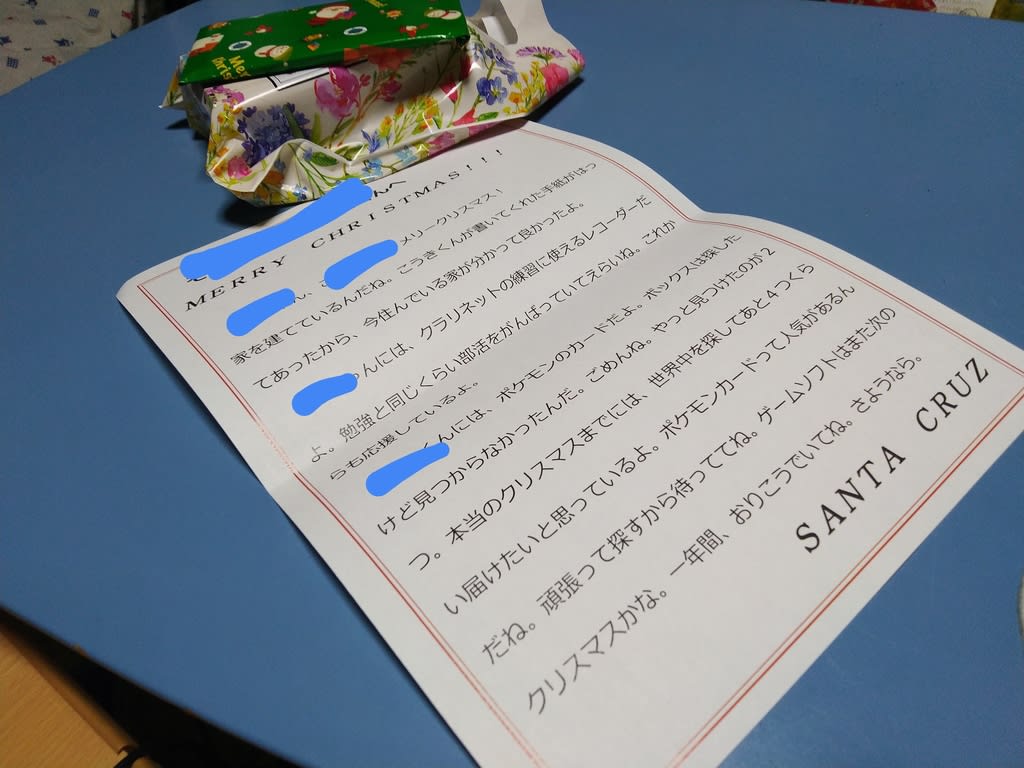 んへ
MERRY CHRISTMAS!!!
ん、 メリークリスマス!
家を建てているんだね。こうきくんが書いてくれた手紙がはっ
てあったから、今住んでいる家が分かって良かったよ。
んには、クラリネットの練習に使えるレコーダーだ
よ。勉強と同じくらい部活をがんばっていてえらいね。これか
らも応援しているよ。
くんには、ポケモンのカードだよ。ボックスは探した
けど見つからなかったんだ。ごめんね。やっと見つけたのが2
つ。本当のクリスマスまでには、世界中を探してあと4つくら
い届けたいと思っているよ。ポケモンカードって人気があるん
だね。頑張って探すから待っててね。ゲームソフトはまた次の
クリスマスかな。一年間、おりこうでいてね。さようなら。
SANTA CRUZ